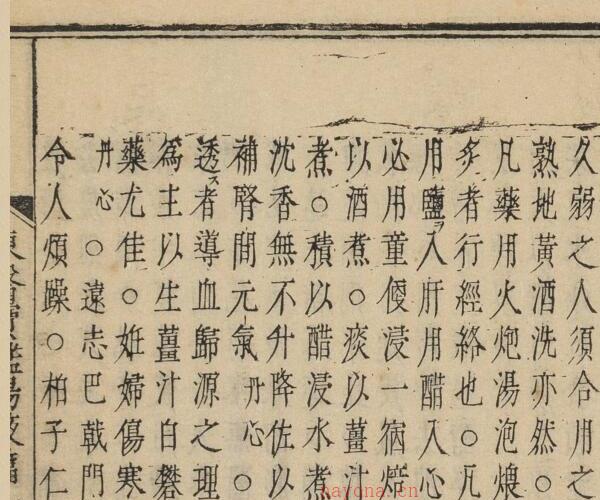 久弱之人須合用之
熟地黃酒洗亦然○
凡藥用火炮湯泡煨
炙者行經絡也○凡
用鹽ヲ入肝用醋入心
必用童便浸一宿焙
以酒煮○痰以薑汁
煮○積以醋浸水煮
沈香無不升降佐以
補腎間元氣丹心○
透ス者導血歸源之理
為主以生薑汁白礬
藥尤佳○姙婦傷寒
丹心○遠志巴戟門
令人煩躁○柏子仁
東醫寶鑑湯液篇
hayona.cn